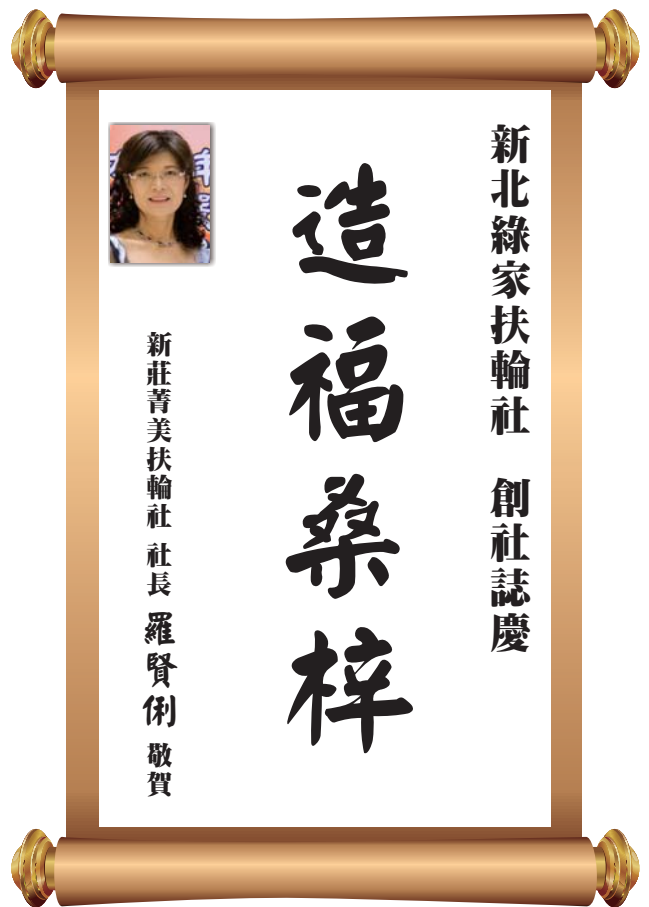 新北綠家扶輪社　創社誌慶
造福桑梓
新莊菁美扶輪社 社長 羅賢俐 敬賀